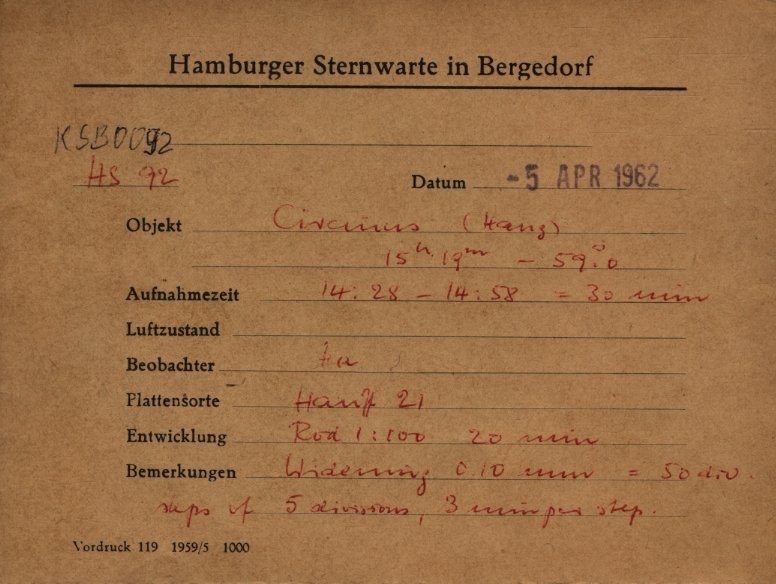 Hamburger Sternwarte in Bergedorf
KSB0092
HS 92
Datum -5 APR 1962
Objekt Circinus (Hang)
15h 19m - 59.°0
Aufnahmezeit 14:28 - 14:58 = 30 min
Luftzustand
Beobachter Ha
Plattensorte Hauff 21
Entwicklung Rod 1:100 20 min
Bemerkungen Widening 0.10 mm = 50 div.
steps of 5 divisions, 3 min per step.
Vordruck 119 1959/5 1000